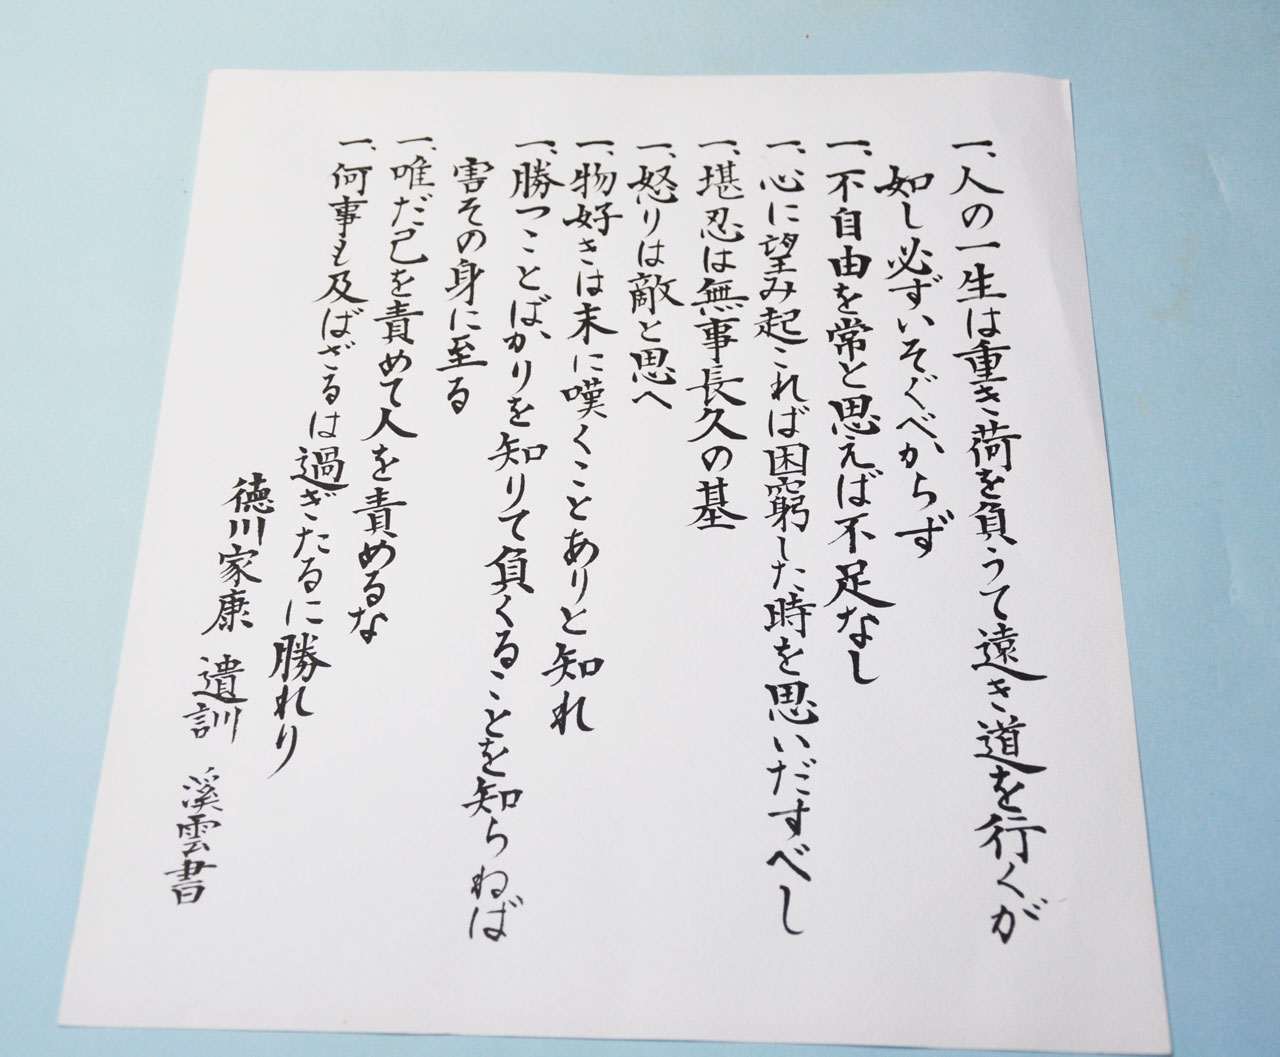 一、人の一生は重き荷を負うて遠き道を行くが
如し必ずいそぐべからず
一、不自由を常と思えば不足なし
一、心に望み起これば困窮した時を思いだすべし
一、堪忍は無事長久の基
一、怒りは敵と思へ
一、物好きは末に嘆くことありと知れ
一、勝つことばかりを知りて負くることを知らねば
害その身に至る
一、唯だ己を責めて人を責めるな
一、何事も及ばざるは過ぎたるに勝れり
徳川家康 遺訓 溪雲書